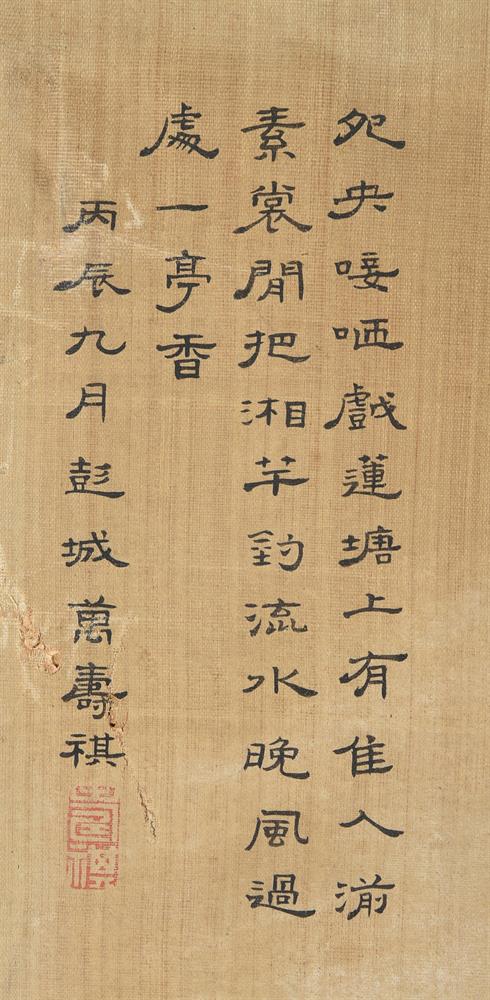 夗央唼哂戲蓮塘上有佳人湔
素裳閒把湘竿釣流水晚風過
處一亭香
丙辰九月彭城萬壽祺